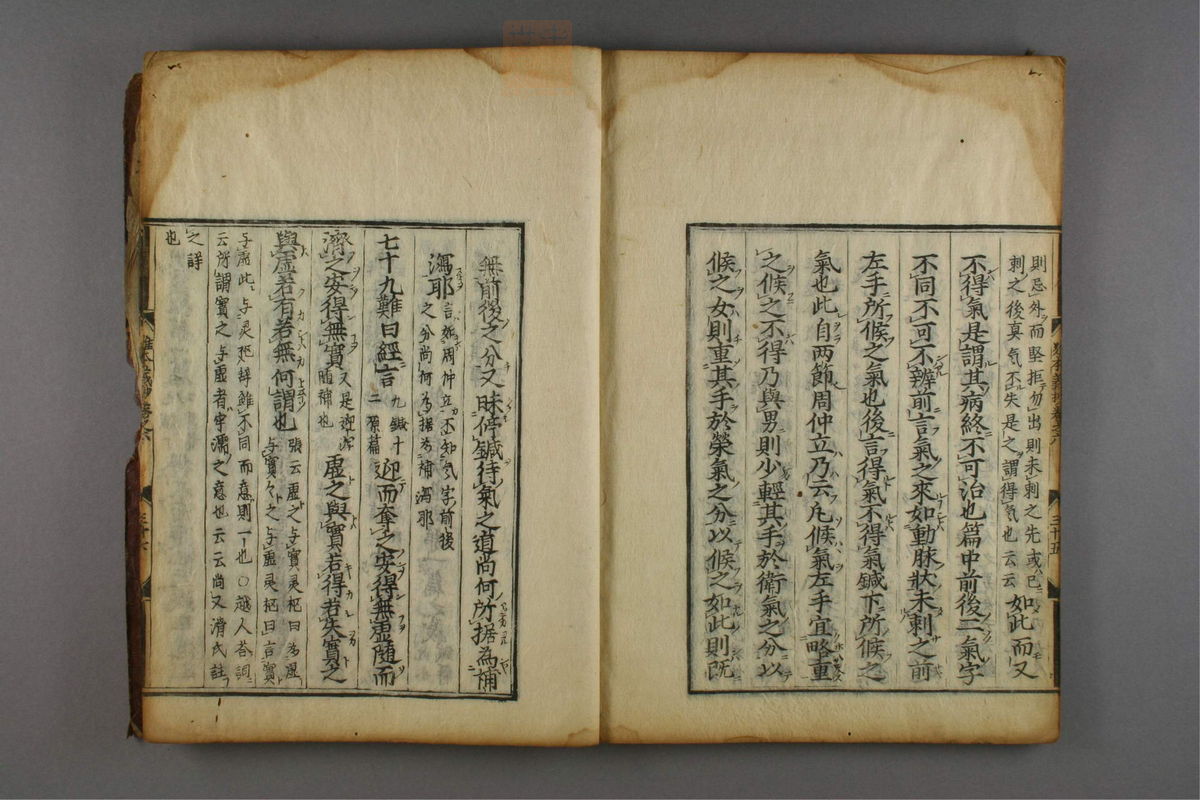 則忌外而堅拒勿出則未刺之先或已
刺之後真気不失是之謂得気也云云如此而又
不得氣是謂其病終不可治也篇中前後二氣字
不同不可不辨前言氣之來如動脉狀未刺之前
左手所候之氣也後言得氣不得氣鍼下所候之
氣也此自两節周仲立乃云凡候氣左手宜略重
之候之不得乃與男則少輕其手於衛氣之分以
候之女則重其手於榮氣之分以候之如此則既
三十五
無前後之分又昧停鍼待氣之道尚何所據為補
瀉耶言如周仲立不知気字前後
之分尚何為據為補瀉耶
七十九難曰經言九鍼十
二原篇迎而奪之安得無虛随而
濟之安得無實又是迎瀉
随補也虛之與實若得若失實之
與虛若有若無何謂也張云虚之与實灵枢曰為虚
与實々之与虚灵枢曰言實
与虚此与灵枢辞雖不同而意則一也○越人荅詞
云所謂實之与虚者牢濡之意也云云尚又滑氏註
之詳
也
三十六